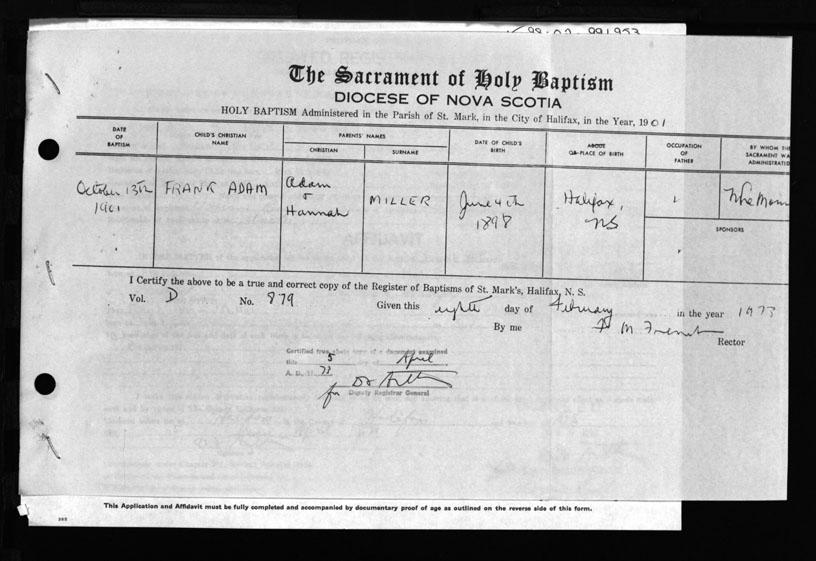 991953
The Sacrament of Holy Baptism
DIOCESE OF NOVA SCOTIA
HOLY BAPTISM Administered in the Parish of St. Mark, in the City of Halifax, in the Year, 1901
DATE OF BAPTISM
CHILD'S CHRISTIAN NAME
PARENTS' NAMES
CHRISTIAN
SURNAME
DATE OF CHILD'S BIRTH
PLACE OF BIRTH
OCCUPATION OF FATHER
BY WHOM THE
SACRAMENT WA
ADMINISTRATED
October 13th
1901
FRANK ADAM
Adam
+
Hannah
MILLER
June 4th
1898
Halifax,
NS
SPONSORS
I Certify the above to be a true and correct copy of the Register of Baptisms of St. Mark's, Halifax, N. S.
Vol. D No. 879 Given this eighth day of February in the year 1973
By me M French
Rector
AFFIDAVIT
Certified true copy of a document examined
this 5 day of April
A. D. 73
for Deputy Registrar General
This Application and Affidavit must be fully completed and accompanied by documentary proof of age as outlined on the reverse side of this form.